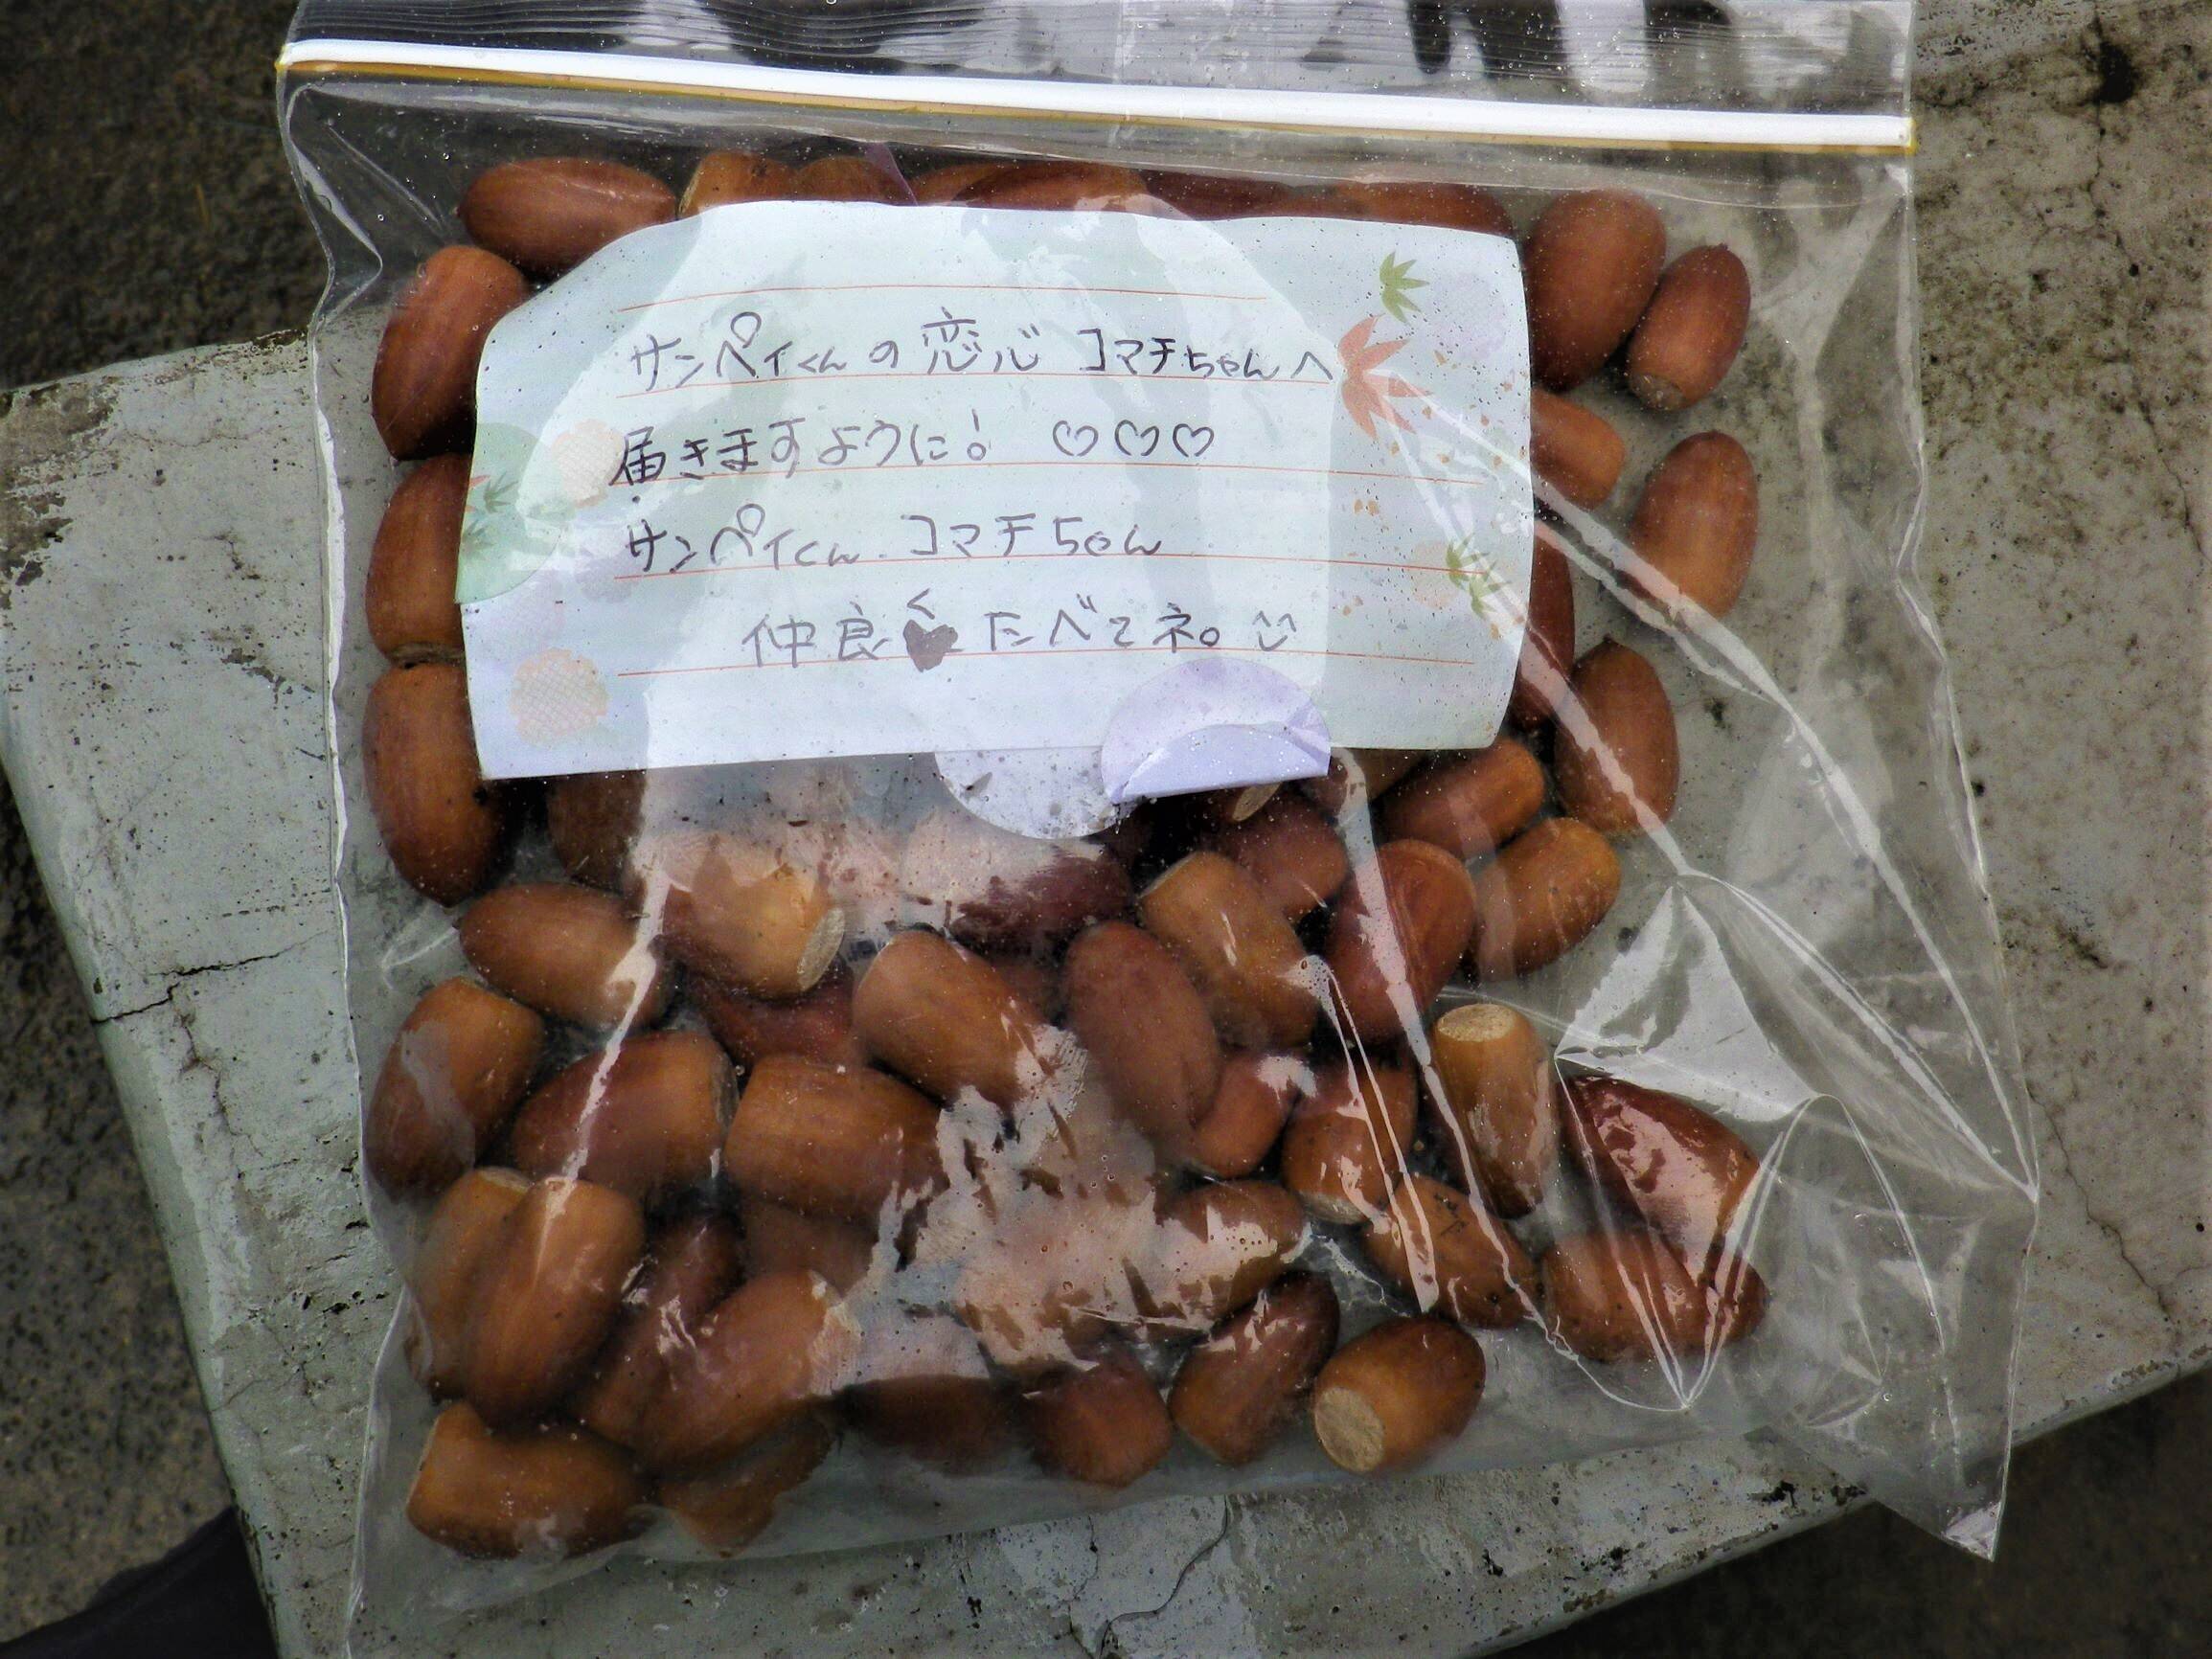 サンペイくんの恋心 コマチちゃんへ
届きますように! ♡♡♡
サンペイくん.コマチちゃん
仲良くたべてネ。